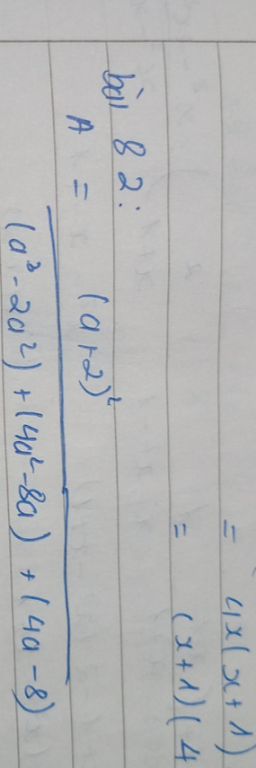 = 4x(x+1)
= (x+1)(4
bài 82:
A = (a+2)²
(a³-2a²)+(4a²-8a)+(4a-8)